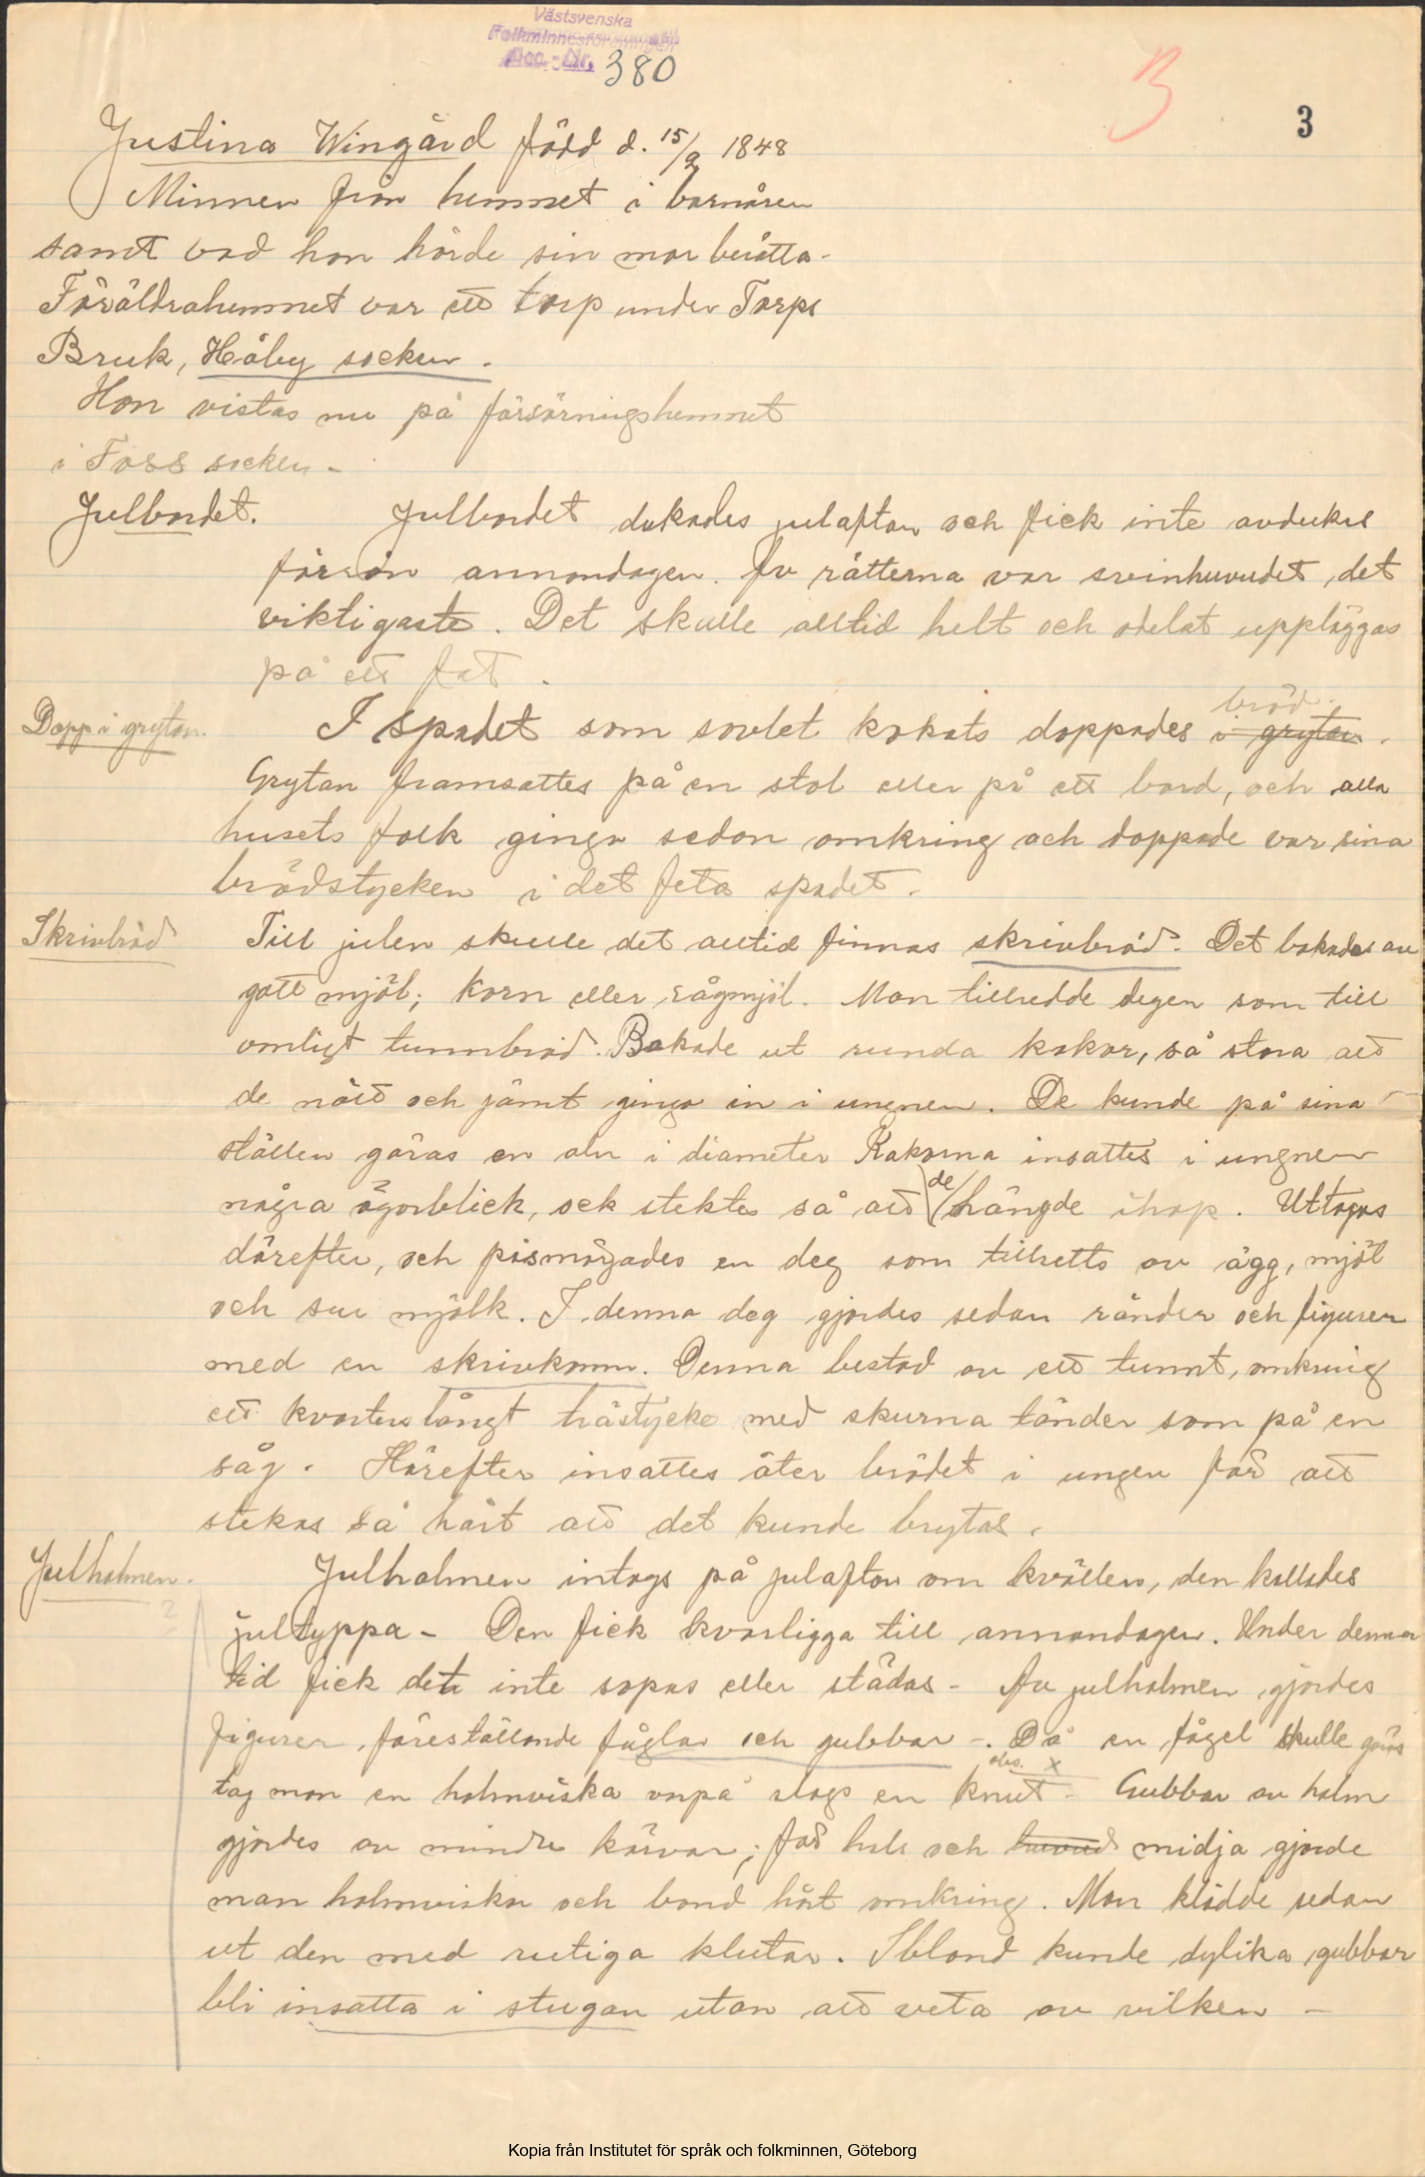 Västsvenska
Folkminnesföreningen
Acc.-Nr. 380
3
Justina Wingård född d. 15/2 1848
Minnen från hemmet i barnåren
samt vad hon hörde sin mor berätta.
Föräldrahemmet var ett torp under Torps
Bruk, Håby socken.
Hon vistas nu på försörningshemmet
i Foss socken -
Julbordet. Julbordet dukades julafton och fick inte avdukas
förrän annandagen. Av rätterna var svinhuvudet, det
viktigaste. Det skulle alltid helt och odelat uppläggas
på ett fat.
bröd.
Dopp i grytan. I spadet som sovlet kokats doppades i grytan.
Grytan framsattes på en stol eller på ett bord, och alla
husets folk gingo sedan omkring och doppade var sina
brödstycken i det feta spadet.
Skrivbröd Till julen skulle det alltid finnas skrivbröd. Det bakades av
gott mjöl; korn eller rågmjöl. Man tillredde degen som till
vanligt tunnbröd. Bakade ut runda kakor, så stora att
de nätt och jämt gingo in i ungnen. De kunde på sina
ställen göras en aln i diameter Kakorna insattes i ungnen
några ögonblick, ock stektes så att de hängde ihop. Uttogos
därefter, och påsmörjades en deg som tillretts av ägg, mjöl
och sur mjölk. I denna deg gjordes sedan ränder och figurer
med en skrivkamm. Denna bestod av ett tunnt, omkring
ett kvarters långt trästycke med skurna tänder som på en
såg. Härefter insattes åter brödet i ungen för att
stekas så hårt att det kunde brytas.
Julhalmen. Julhalmen intogs på julafton om kvällen, den kallades
jultyppa - Den fick kvarligga till annandagen. Under denna
tid fick det inte sopas eller städas - Av julhalmen gjordes
figurer, föreställande fåglar och gubbar -. Då en fågel skulle göras
obs. x
tog man en halmviska varpå slogs en knut - Gubbar av halm
gjordes av mindre kärvar; för hals och huvud midja gjorde
man halmviskor och band hårt omkring. Man klädde sedan
ut den med rutiga klutar. Ibland kunde dylika gubbar
bli insatta i stugan utan att veta av vilken -
Kopia från Institutet för språk och folkminnen, Göteborg